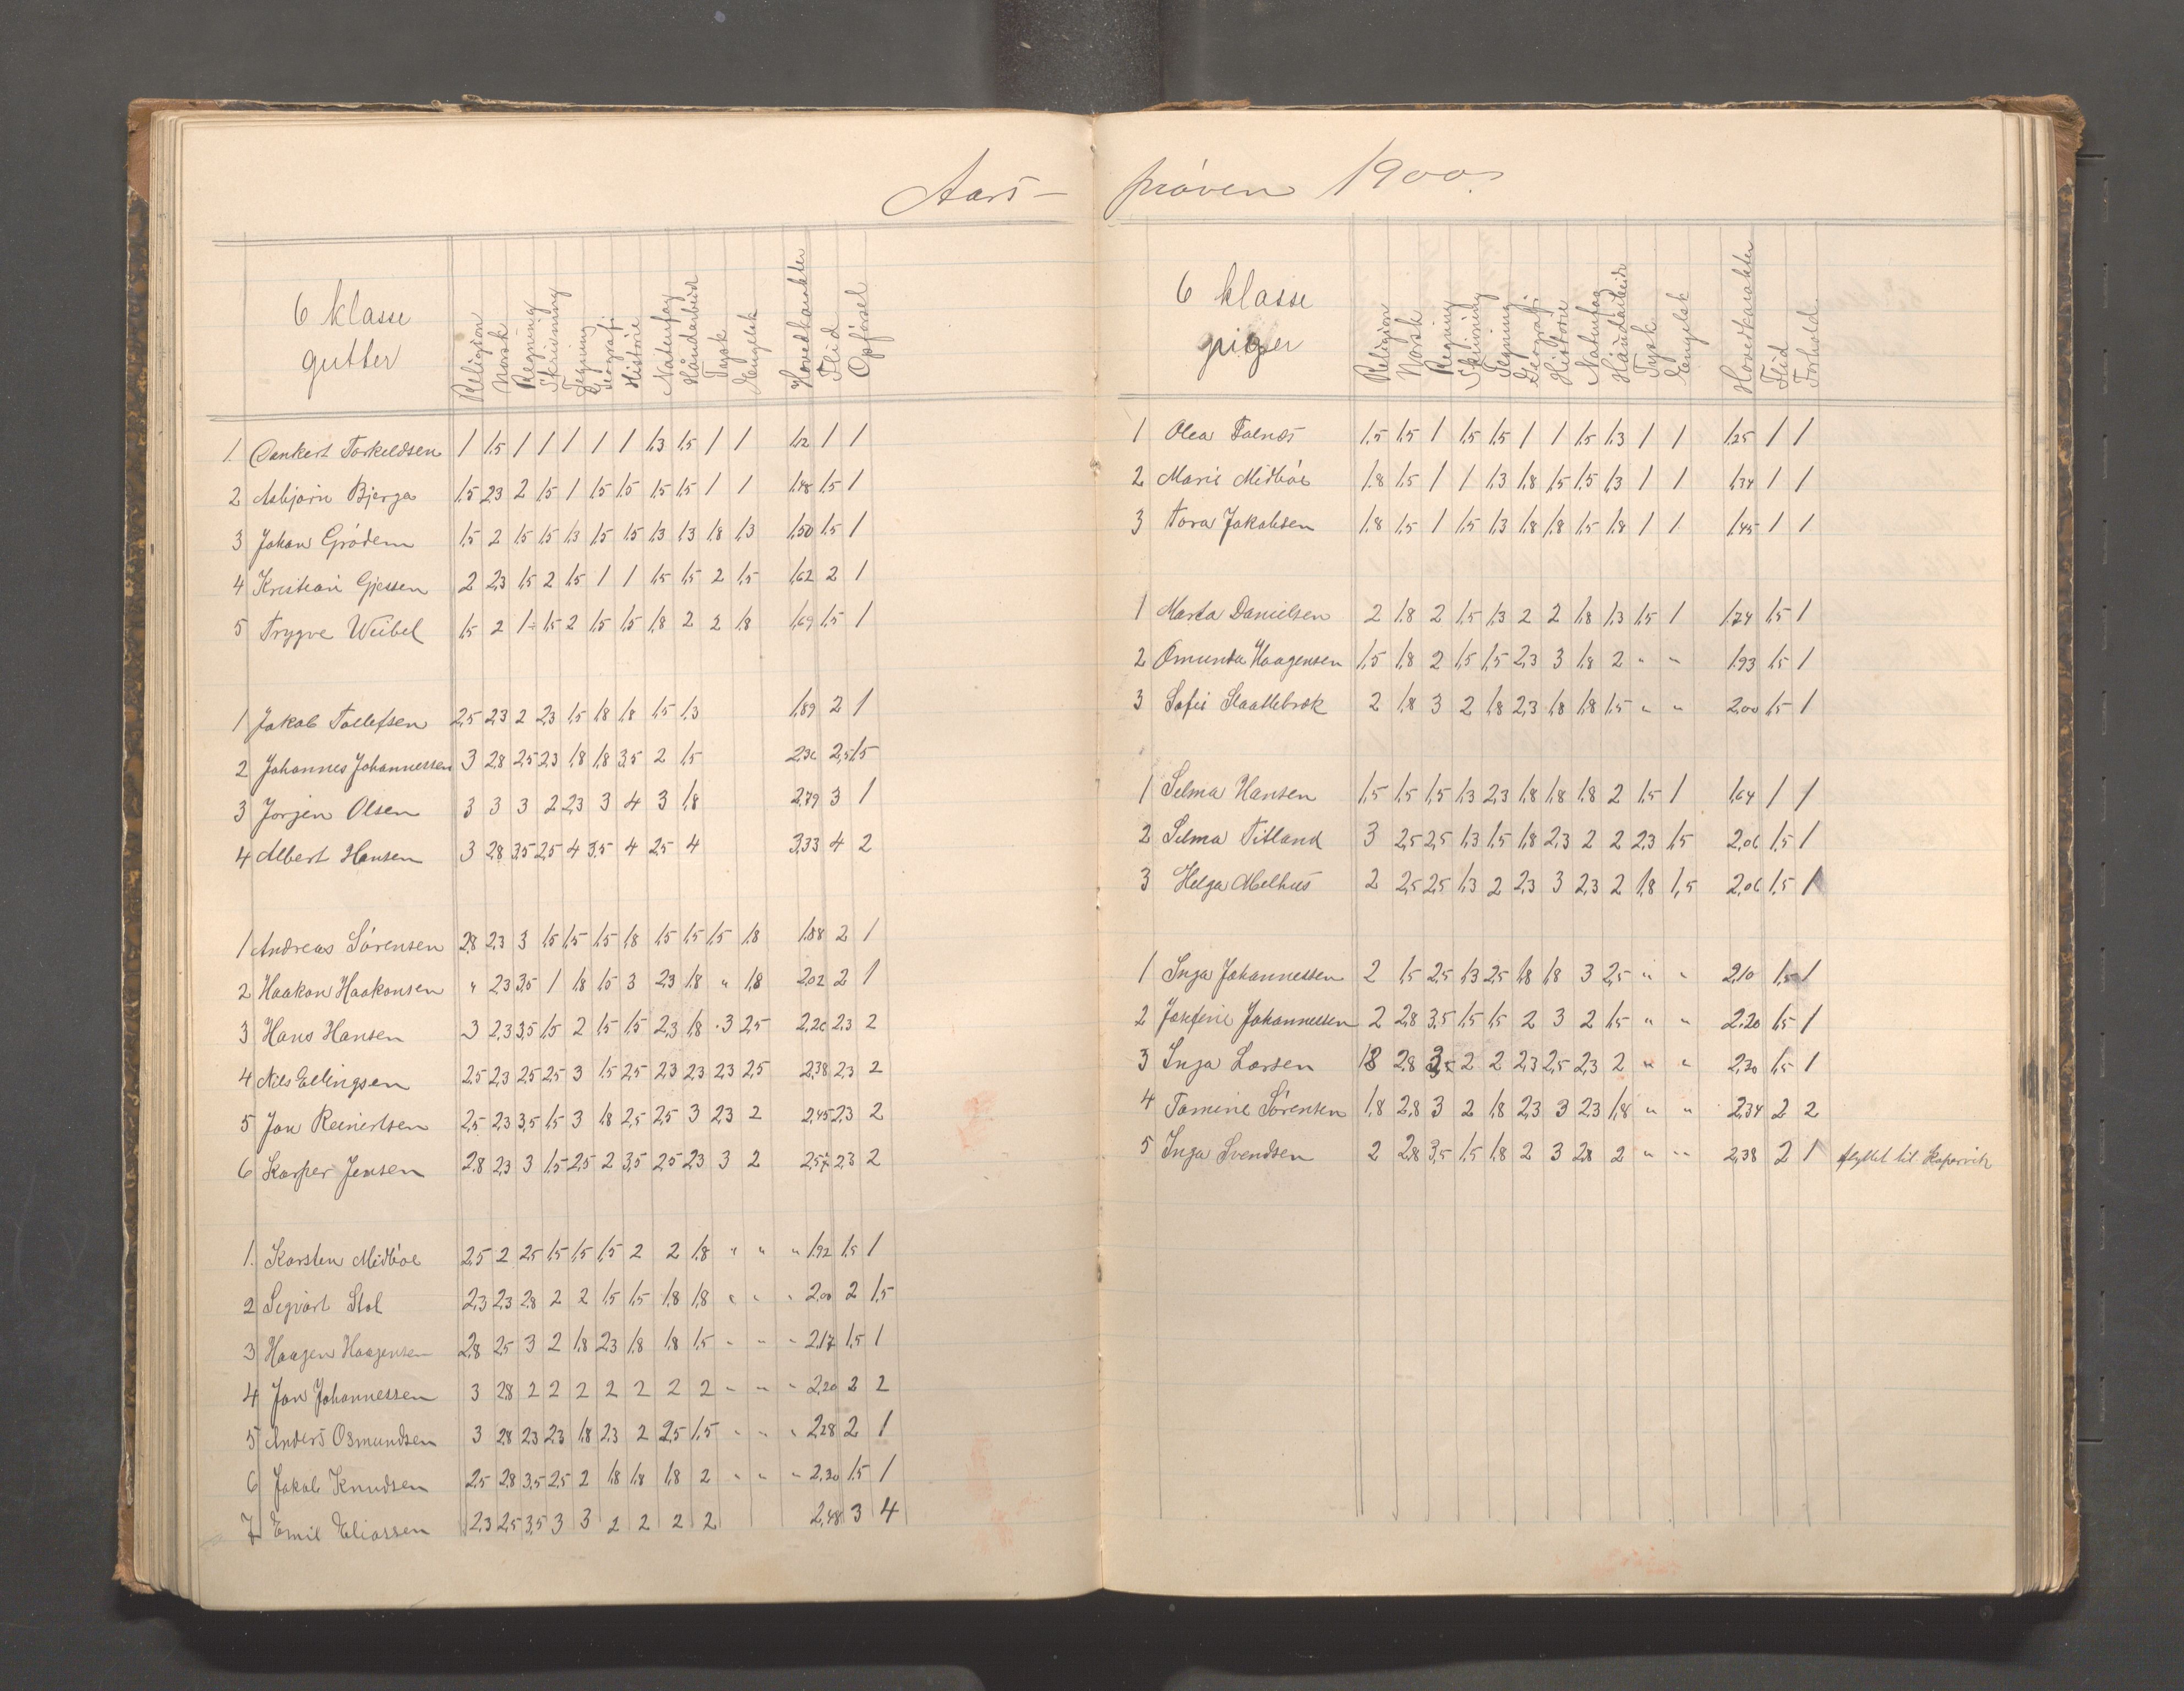 Aars-
6 klasse gutter Religion Norsk Regning Skrivning Tegning Geografi. Historie Naturfag Håndarbeid Tysk Engelsk Hovedkarakter Flid Opførsel
1 Torkeldsen 1 1,5 1 1 1 1 1 1,3 1,5 1 1 1,12 1 1
2 Asbjørn Bjerga 1,5 2,3 2 1,5 1 1,5 1,5 1,5 1,5 1 1 1,48 1,5 1
3 Johan Grødem 1,5 2 1,5 1,5 1,3 1,5 1,5 1,3 1,3 1,8 1,3 1,50 1,5 1
4 Kristian Gjessen 2 2,3 1,5 2 1,5 1 1 1,5 1,5 2 1,5 1,62 2 1
5 Trygve Weibel 1,5 2 1 1,5 2 1,5 1,5 1,8 2 2 1,8 1,69 1,5 1
1 Jakob Tollefsen 2,5 2,3 2 2,3 1,5 1,8 1,8 1,5 1,3 1,89 2 1
2 Johannes Johannessen 3 2,8 2,5 2,3 1,8 1,8 3,5 2 1,5 2,36 2,5 1,5
3 Jørjen Olsen 3 3 3 2 2,3 3 4 3 1,8 2,79 3 1
4 Albert Hansen 3 2,8 3,5 2,5 4 3,5 4 2,5 4 3,33 4 2
1 Andreas Sørensen 2,8 2,3 3 1,5 1,5 1,5 1,8 1,5 1,5 1,5 1,8 1,88 2 1
2 Haakon Haakonsen " 2,3 3,5 1 1,8 1,5 3 2,3 1,8 " 1,8 2,02 2 1
3 Hans Hansen 3 2,3 3,5 1,5 2 1,5 1,5 2,3 1,8 3 2,5 2,26 2,3 2
4 Nils Ellingsen 2,5 2,3 2,5 2,5 3 1,5 2,5 2,3 2,3 2,3 2,5 2,38 2,3 2
5 Jon Reinertsen 2,5 2,3 3,5 1,5 3 1,8 2,5 2,5 3 2,3 2 2,45 2,3 2
6 Kasper Jensen 2,8 2,3 3 1,5 2,5 2 3,5 2,5 2,3 3 2 2,57 2,3 2
1. Karsten Midbøe 2,5 2 2,5 1,5 1,5 1,5 2 2 1,8 " " " 1,92 1,5 1
2 Sigvart Stol 2,3 2,3 2,8 2 2 1,5 1,5 1,8 1,8 " " " 2,00 2 1,5
3 Haagen Haagensen 2,8 2,5 3 2 1,8 2,3 1,8 1,8 1,5 " " " 2,17 1,5 1
4 Jon Johannessen 3 2,8 2 2 2 2 2 2 2 " " " 2,20 2 2
5 Anders Osmundsen 3 2,8 2,3 2,3 1,8 2,3 2 2,5 1,5 " " " 2,28 2 1
6 Jakob Knudsen 2,5 2,8 3,5 2,5 2 1,8 1,8 1,8 2 " " " 2,30 1,5 1
7 Emil Eliassen 2,3 2,5 3,5 3 3 2 2 2 2 2,48 3 4
prøven 1900.
6 klasse piger Religion Norsk Regning Skrivning Tegning Geografi. Historie Naturfag Håndarbeide Tysk Engelsk Hovedkarakter Flid Forhold
1 Olea Falnes 1,5 1,5 1 1,5 1,5 1 1 1,5 1,3 1 1 1,25 1 1
2 Marie Midbøe 1,8 1,5 1 1 1,3 1,8 1,5 1,5 1,3 1 1 1,34 1 1
3 Tora Jakobsen 1,8 1,5 1 1,5 1,3 1,8 1,8 1,5 1,8 1 1 1,45 1 1
1 Marta Danielsen 2 1,8 2 1,5 1,3 2 2 1,8 1,3 1,5 1 1,74 1,5 1
2 Omunda Haagensen 1,5 1,8 2 1,5 1,5 2,3 3 1,8 2 " " 1,93 1,5 1
3 Sofie 2 1,8 3 2 1,8 2,3 1,8 1,8 1,5 " " 2,00 1,5 1
1 Selma Hansen 1,5 1,5 1,5 1,3 2,3 1,8 1,8 1,8 2 1,5 1 1,64 1 1
2 Selma Titland 3 2,5 2,5 1,3 1,5 1,8 2,3 2 2 2,3 1,5 2,06 1,5 1
3 Helga Melhus 2 2,5 2,5 1,3 2 2,3 3 2,3 2 1,8 1,5 2,06 1,5 1
1 Inga Johannessen 2 1,5 2,5 1,3 2,5 1,8 1,8 3 2,5 " " 2,10 1,5 1
2 Josefine Johannessen 2 2,8 3,5 1,5 1,5 2 3 2 1,5 " " 2,20 1,5 1
3 Inga Larsen 1,8 2,8 3,5 2 2 2,3 2,5 2,3 2 " " 2,30 1,5 1
4 Tomine Sørensen 1,8 2,8 3 2 1,8 2,3 3 2,3 1,8 " " 2,34 2 2
5 Inga Svendsen 2 2,8 3,5 1,5 1,8 2 3 2,8 2 " " 2,38 2 1 flyttet til Kopervik